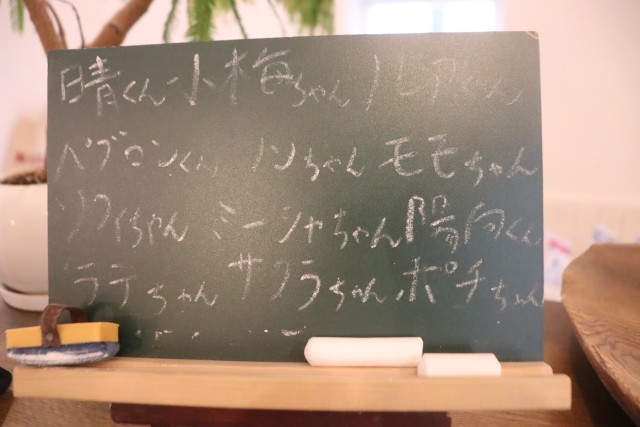 晴くん 小梅ちゃん ルアくん
ベブロンくん ノンちゃん モモちゃん
ソフィちゃん ミーシャちゃん 陽向くん
ラテちゃん サクラちゃん ポチちゃん